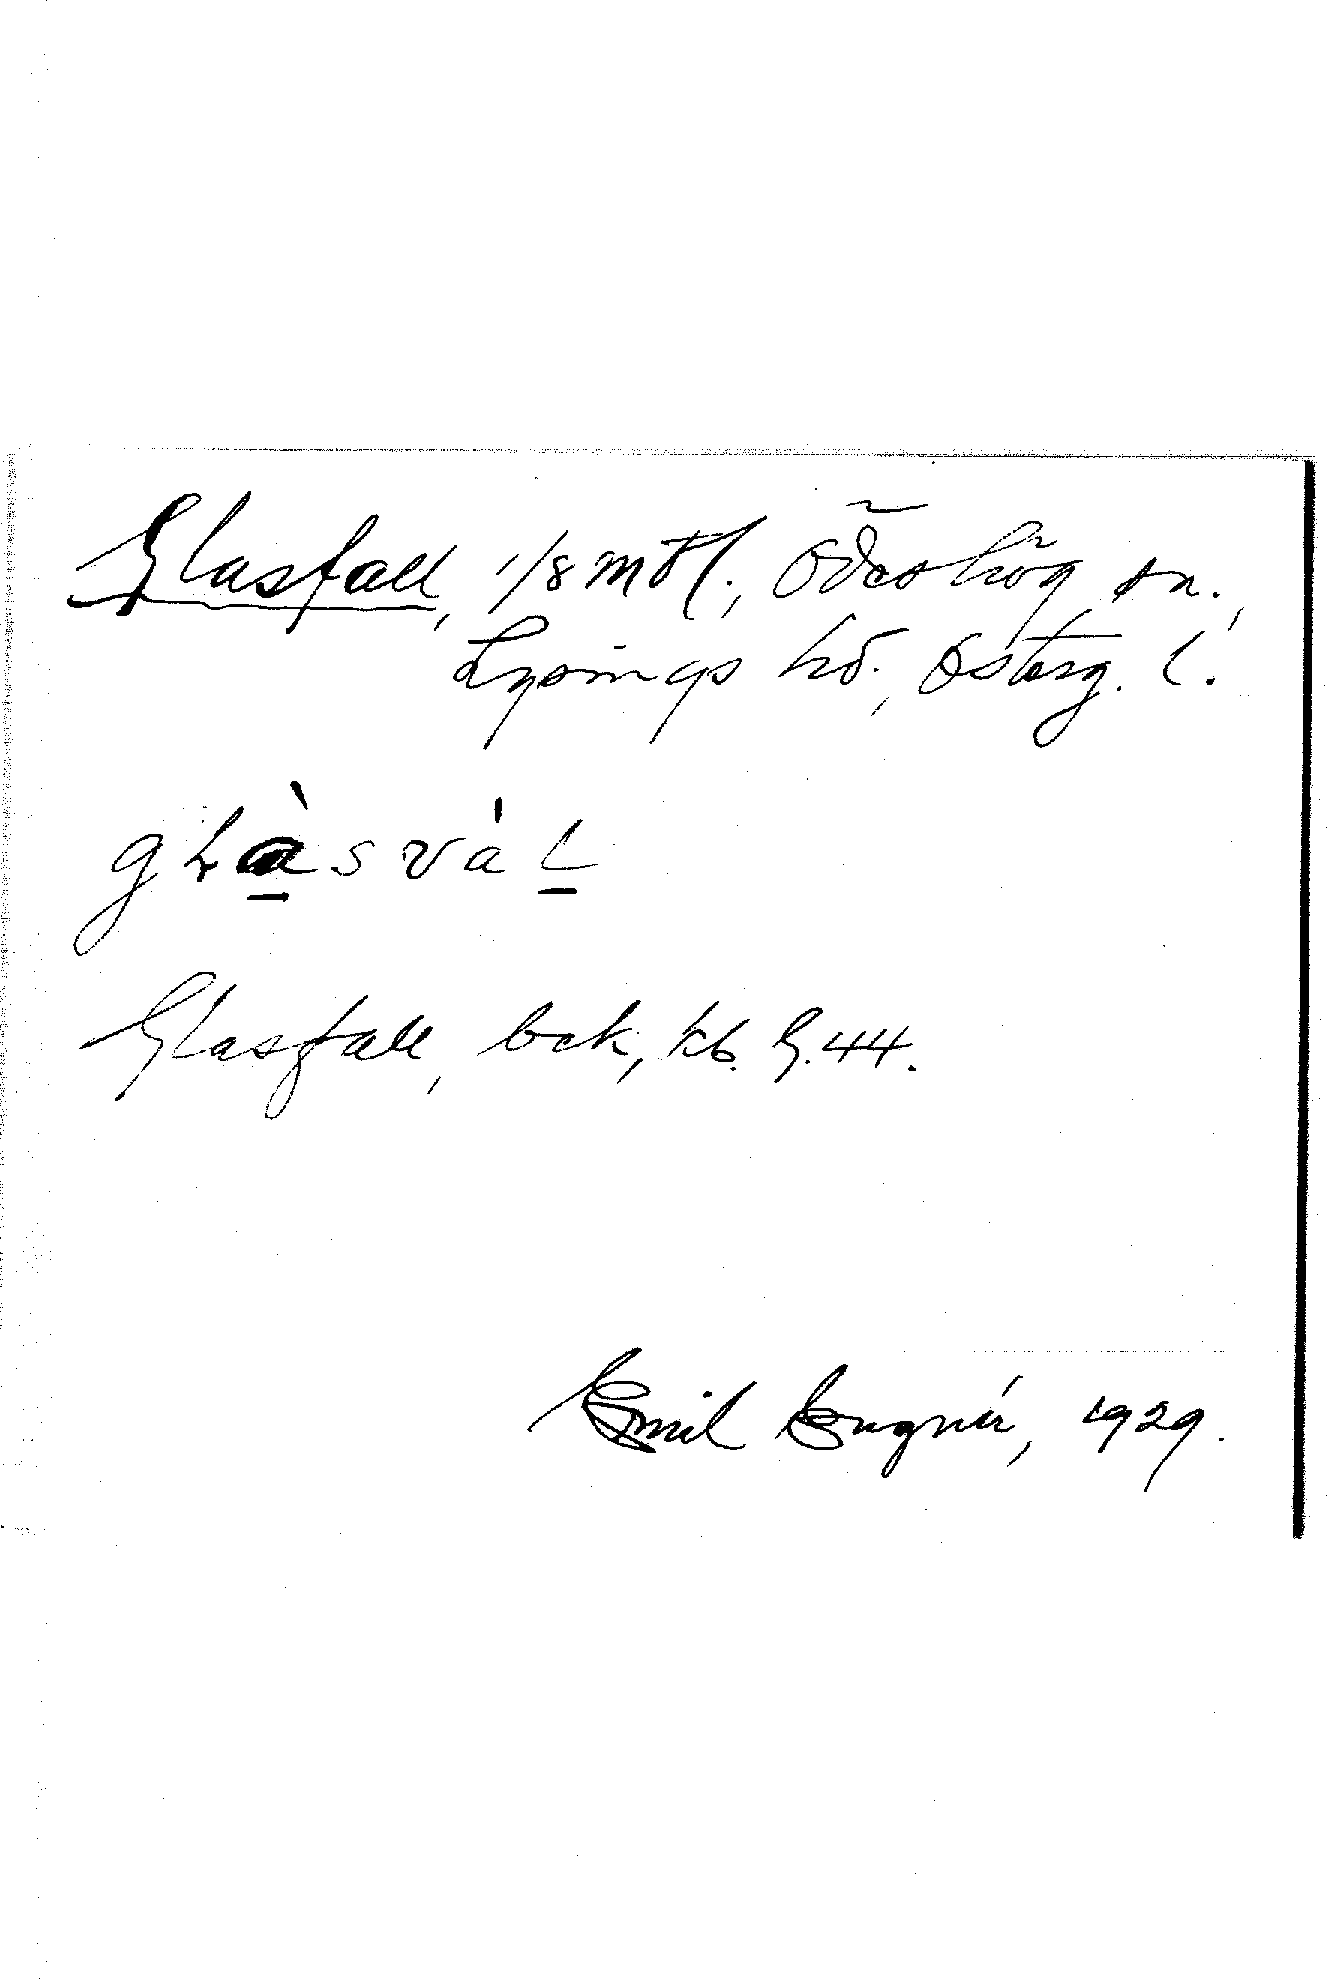 Glasfall, 1/8 mtl., Ödeshög sn.,
Lysings hd., Österg. l.
gLàsvàL
Glasfall, bek, kb. G. 44.
Emil Engnér, 1929.